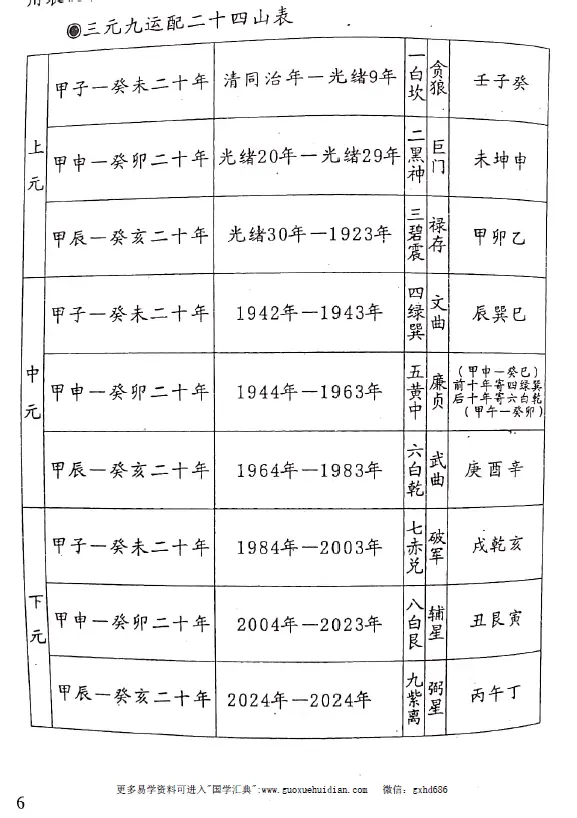 ◉三元九运配二十四山表
上元
甲子—癸未二十年 清同治年—光绪9年 一白坎 贪狼 壬子癸
甲申—癸卯二十年 光绪20年—光绪29年 二黑神 巨门 未坤申
甲辰—癸亥二十年 光绪30年—1923年 三碧震 禄存 甲卯乙
中元
甲子—癸未二十年 1942年—1943年 四绿巽 文曲 辰巽巳
甲申—癸卯二十年 1944年—1963年 五黄中 廉贞 (甲申—癸巳)
前十年寄四绿巽
后十年寄六白乾
(甲午—癸卯)
甲辰—癸亥二十年 1964年—1983年 六白乾 武曲 庚酉辛
下元
甲子—癸未二十年 1984年—2003年 七赤兑 破军 戌乾亥
甲申—癸卯二十年 2004年—2023年 八白艮 辅星 丑艮寅
甲辰—癸亥二十年 2024年—2024年 九紫离 弼星 丙午丁
更多易学资料可进入"国学汇典":www.guoxuehuidian.com 微信：gxhd686
6